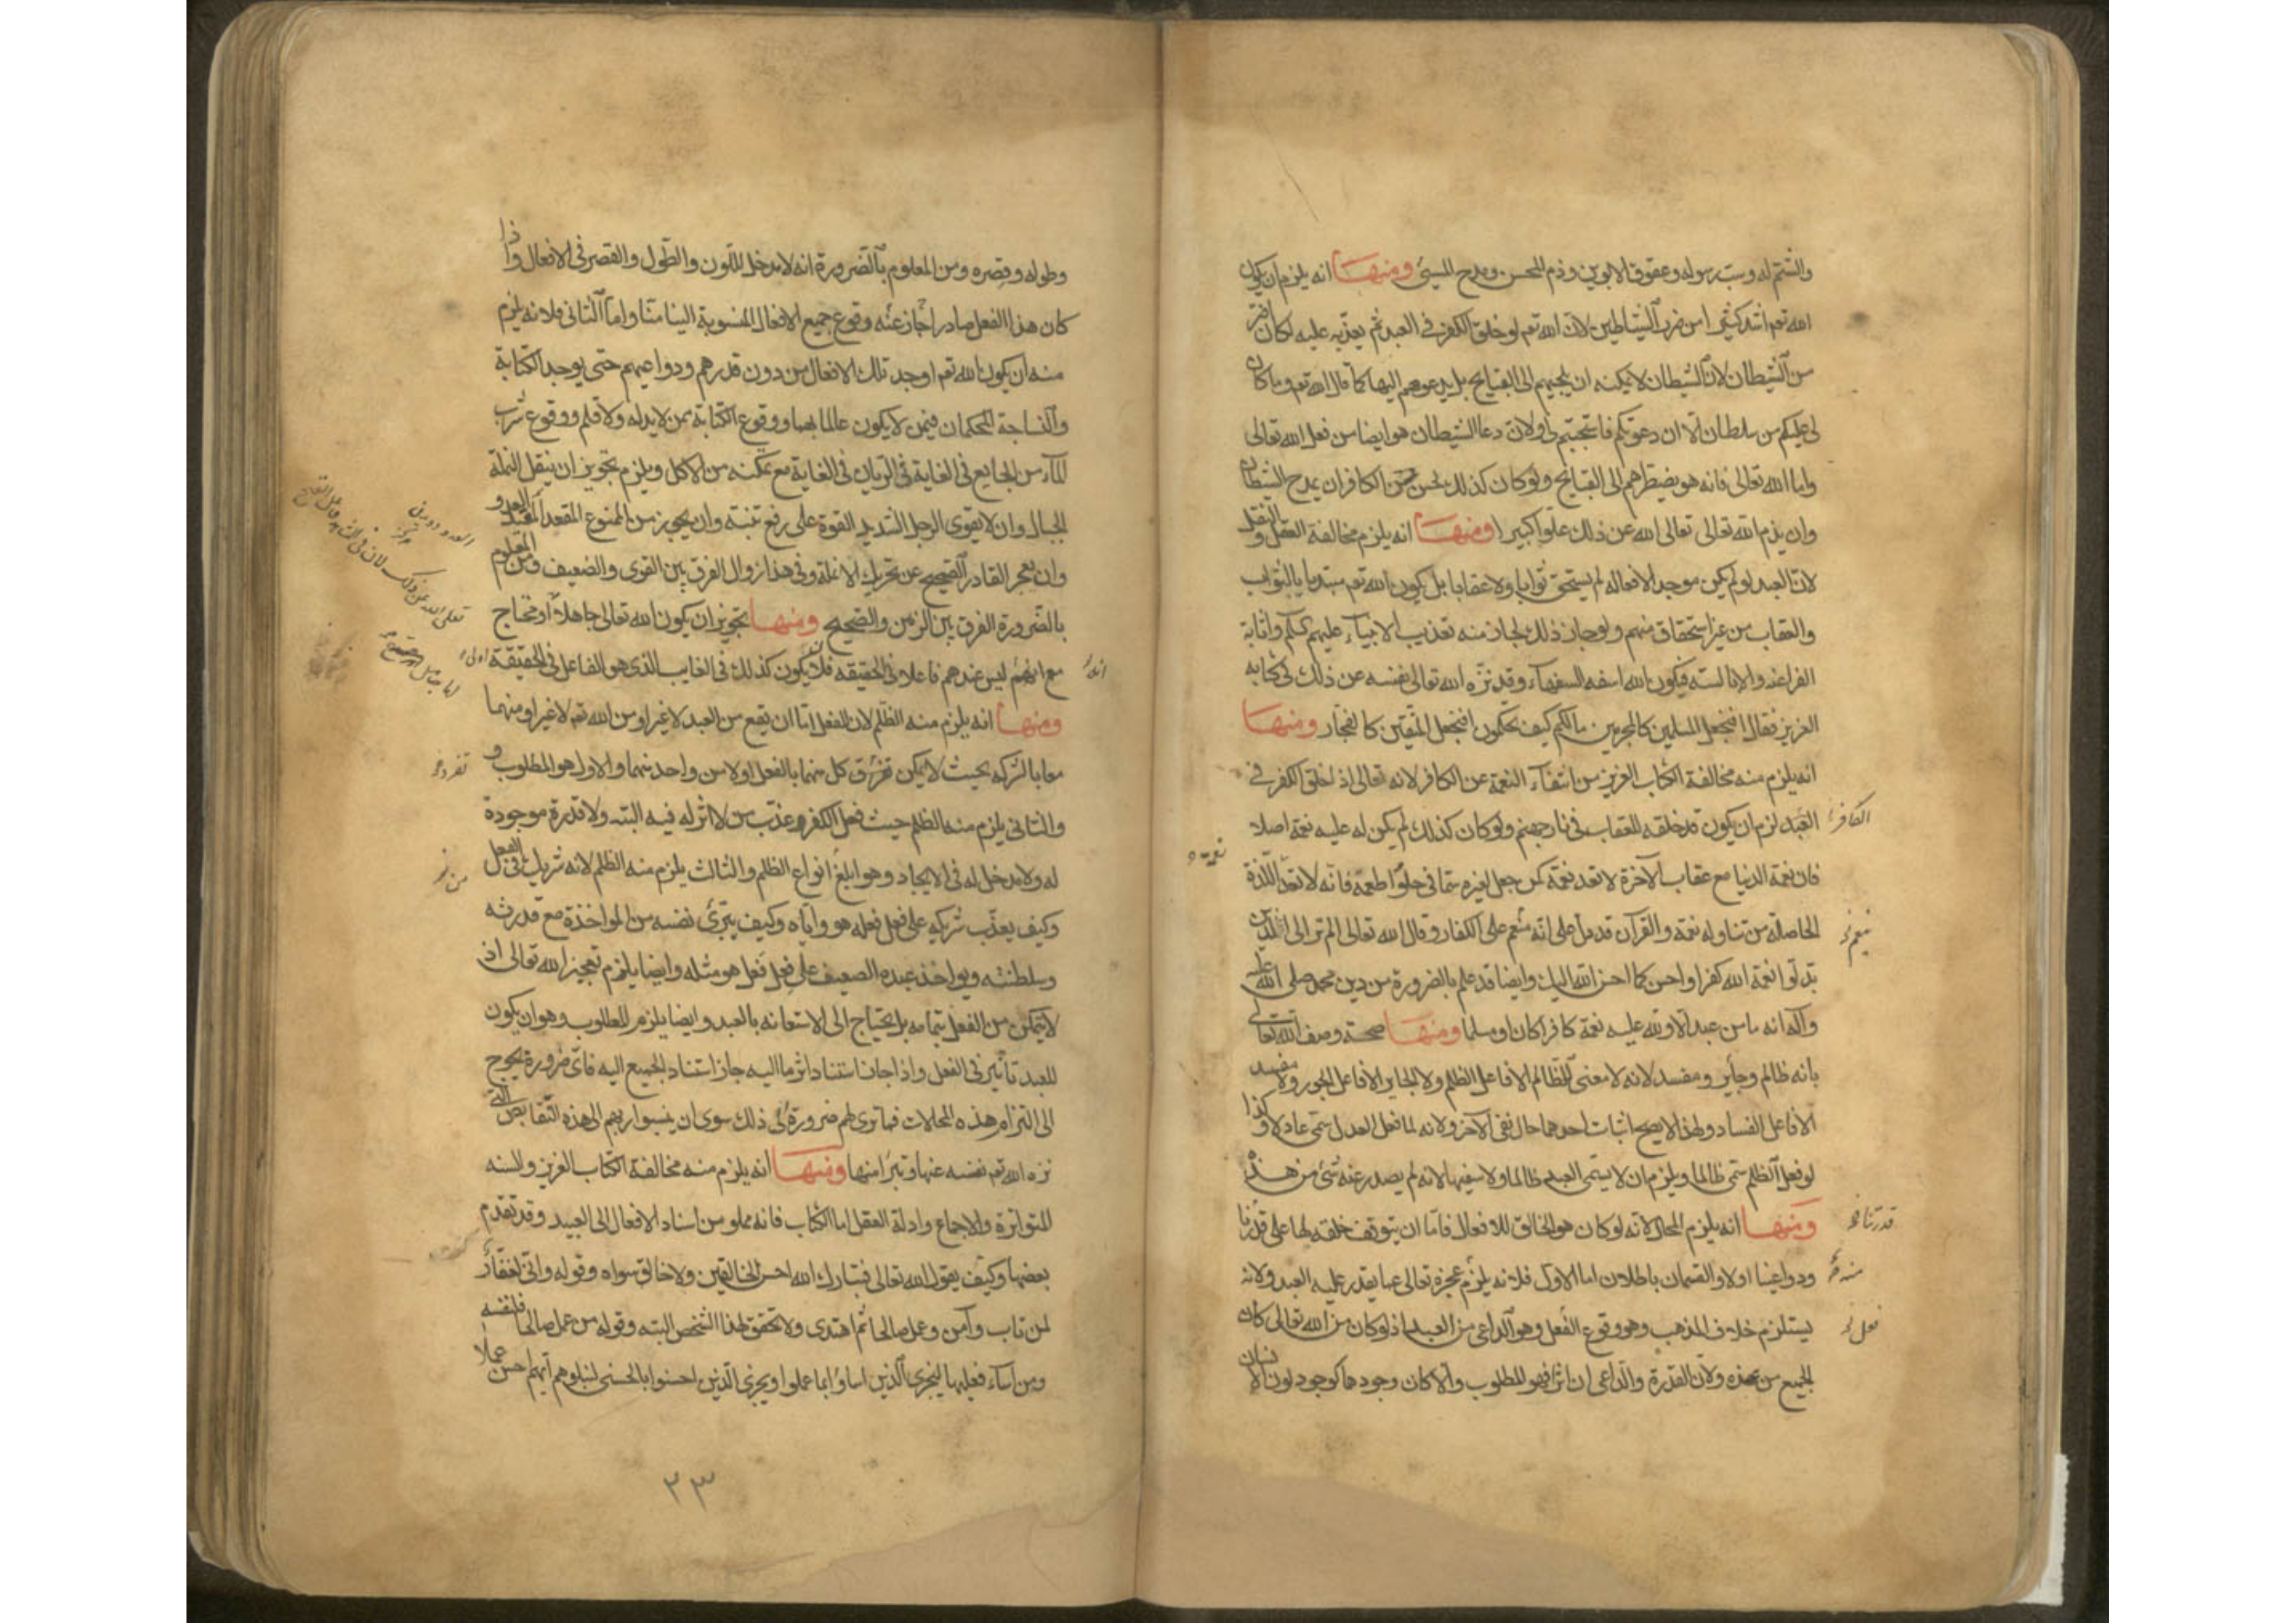 والشتم له وسب رسوله وعقوق الابوين وذم المحسن ومدح المسيئ ومنها انه يلزم ان يكون
الله تعم اشد كثيرا من ضرر الشياطين لان الله تعم لو خلق الكفر في العبد ثم يعذبه عليه لكان اضر
من الشيطان لان الشيطان لا يمكنه ان يلجيهم الى القبايح بل يدعوهم اليها كما قال الله تعم وما كان
لي عليكم من سلطان الا ان دعوتكم فاستجبتم لي ولان دعا الشيطان هو ايضا من فعل الله تعالى
واما الله تعالى فانه هو يضطرهم الى القبايح ولو كان كذلك لحسن من الكافر ان يمدح الشيطان
وان يذم الله تعالى تعالى الله عن ذلك علوا كبيرا ومنها انه يلزم مخالفة العقل والنقل
لان العبد لو لم يكن موجدا لافعاله لم يستحق ثوابا ولا عقابا بل يكون الله تعم مبتديا بالثواب
والعقاب من غير استحقاق منهم ولو جاز ذلك لجاز منه تعذيب الانبياء عليهم السلم واثابة
الفراعنة والابالسة فيكون الله اسفه السفهاء وقد نزه الله تعالى نفسه عن ذلك في كتابه
العزيز فقال افنجعل المسلمين كالمجرمين مالكم كيف تحكمون افنجعل المتقين كالفجار ومنها
انه يلزم منه مخالفة الكتاب العزيز من انتفاء النعمة عن الكافر لانه تعالى اذ اخلق الكفر في
العبد لزم ان يكون قد خلقه للعقاب في نار جهنم ولو كان كذلك لم يكن له عليه نعمة اصلا
الكافر
فان نعمة الدنيا مع عقاب الآخرة لا تعد نعمة كمن جعل لغيره سما في حلوا طعمه فانه لا تعد اللذة
الحاصلة من تناوله نعمة والقرآن قد دل على انه منعم على الكفار وقال الله تعالى الم تر الى الذين
منعم
بدلوا نعمة الله كفرا واحسن كما احسن الله اليك وايضا قد علم بالضرورة من دين محمد صلى الله عليه
وآله انه ما من عبد الا ولله عليه نعمة كافرا كان او مسلما ومنها صحة وصف الله تعالى
بانه ظالم وجاير ومفسد لانه لا معنى للظالم الا فاعل الظلم ولا الجاير الا فاعل الجور ولا مفسد
الا فاعل الفساد ولهذا لا يصح اثبات احدهما حال نفي الآخر ولانه لما فعل العدل سمي عادلا وكذا
لو فعل الظلم سمي ظالما ويلزم ان لا يسمى العبد ظالما ولا سفيها لانه لم يصدر عنه شئ من هذه
ومنها انه يلزم المحال لانه لو كان هو الخالق للافعال فاما ان يتوقف خلقه لها على قدرنا
قدرتنا
ودواعينا او لا والقسمان باطلان اما الاول فلانه يلزم عجزه تعالى عما يقدر عليه العبد ولانه
منه
يستلزم خلاف المذهب وهو وقوع الفعل وهو الداعي من العبد اذ لو كان من الله تعالى كان
فعل
الجميع من عنده ولان القدرة والداعي ان اثرا فهو المطلوب والا كان وجودها كوجود لون الانسان
وطوله وقصره ومن المعلوم بالضرورة انه لا مدخل للون والطول والقصر في الافعال واذا
كان هذا الفعل صادرا جاز عنه وقوع جميع الافعال المنسوبة الينا منا واما الثاني فلانه يلزم
منه ان يكون الله تعم اوجد تلك الافعال من دون قدرهم ودواعيهم حتى يوجد الكتابة
والنساجة المحكمان فيمن لا يكون عالما بهما ووقوع الكتابة ممن لا يد له ولا قلم ووقوع شرب
الماء من الجايع في الغاية في الريان في الغاية مع تمكنه من الاكل ويلزم تجويز ان ينقل النملة
الجبال وان لا يقوى الرجل الشديد القوة على رفع تبنة وان يجوز من الممنوع المقعد العدو
وان يعجز القادر الصحيح عن تحريك الانملة وفي هذا زوال الفرق بين القوى والضعيف ومن المعلوم
بالضرورة الفرق بين الزمن والصحيح ومنها تجويز ان يكون الله تعالى جاهلا او محتاج
مع انهم ليس عندهم فاعلا في الحقيقه فلان يكون كذلك في الغايب الذي هو الفاعل في الحقيقة اولى
ومنها انه يلزم منه الظلم لان الفعل اما ان يقع من العبد لا غير او من الله تعم لا غير او منهما
معا بالشركة بحيث لا يمكن تفرق كل منهما بالفعل او لا من واحد منهما والاول هو المطلوب و
تفرد
والثاني يلزم منه الظلم حيث فعل الكفر وعذب من لا اثر له فيه البته ولا قدرة موجودة
له ولا مدخل له في الايجاد وهو ابلغ انواع الظلم والثالث يلزم منه الظلم لانه شريك في الفعل
وكيف يعذب شريكه على فعل فعله هو واياه وكيف يتبرئ نفسه من المواخذة مع قدرته
وسلطنته ويواخذ عبده الضعيف على فعل فعل هو مثله وايضا يلزم تعجيز الله تعالى اذ
لا يتمكن من الفعل بتمامه بل يحتاج الى الاستعانه بالعبد وايضا يلزم المطلوب وهو ان يكون
للعبد تأثير في الفعل واذا جاز استناد اثر ما اليه جاز استناد الجميع اليه فاي ضرورة يحوج
الى التزام هذه المحالات فما ترى لهم ضرورة الى ذلك سوى ان ينسبوا ربهم الى هذه النقايص التي
نزه الله تعم نفسه عنها وتبرأ منها ومنها انه يلزم منه مخالفة الكتاب العزيز والسنه
المتواترة والاجماع وادلة العقل اما الكتاب فانه مملو من اسناد الافعال الى العبيد وقد تقدم
بعضها وكيف يقول الله تعالى فتبارك الله احسن الخالقين ولا خالق سواه وقوله واني لغفار
لمن تاب وآمن وعمل صالحا ثم اهتدى ولا تحقق لهذا الشخص البته وقوله من عمل صالحا فلنفسه
ومن اساء فعليها ليجزي الذين اساؤا بما عملوا ويجزى الذين احسنوا بالحسنى لنبلوهم ايهم احسن عملا
٢٣